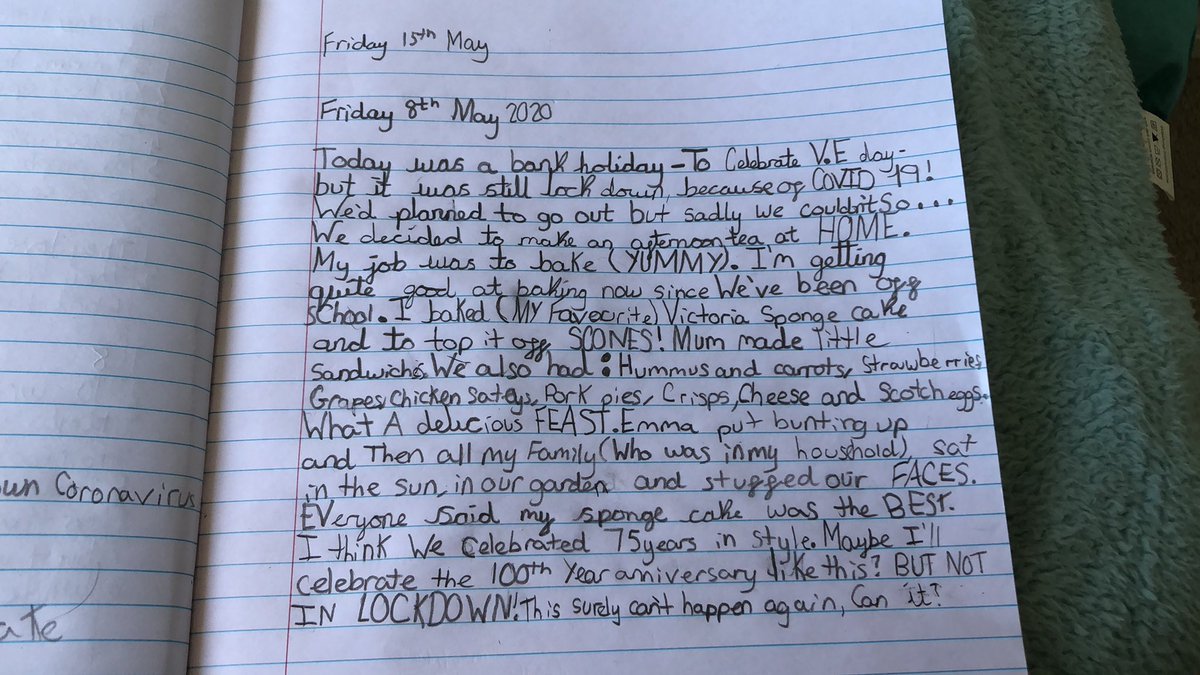 Friday 15th May
Friday 8th May 2020
Today was a bank holiday - To Celebrate V.E day -
but it was still lock down, because of COVID-19!
We'd planned to go out but sadly we couldn't So...
We decided to make an afternoon tea at HOME.
My job was to bake (YUMMY). I'm getting
quite good at baking now since We've been off
school. I baked (MY Favecurite) Victoria Sponge cake
and to top it off SCONES! Mum made little
Sandwichs. We also had: Hummus and carrots, Strawberries,
Grapes, Chicken Sateys, Pork pies, Crisps, Cheese and Scotch eggs.
What A delicious FEAST. Emma put bunting up
and Then all my Family (Who was in my household), sat
in the sun, in our garden and stuffed our FACES.
EVeryone Said my sponge cake was the BEST.
I think We Celebrated 75 years in Style. Maybe I'll
celebrate the 100th Year anniversary like this? BUT NOT
IN LOCKDOWN! This surely can't happen again, Can it?
Coronavirus